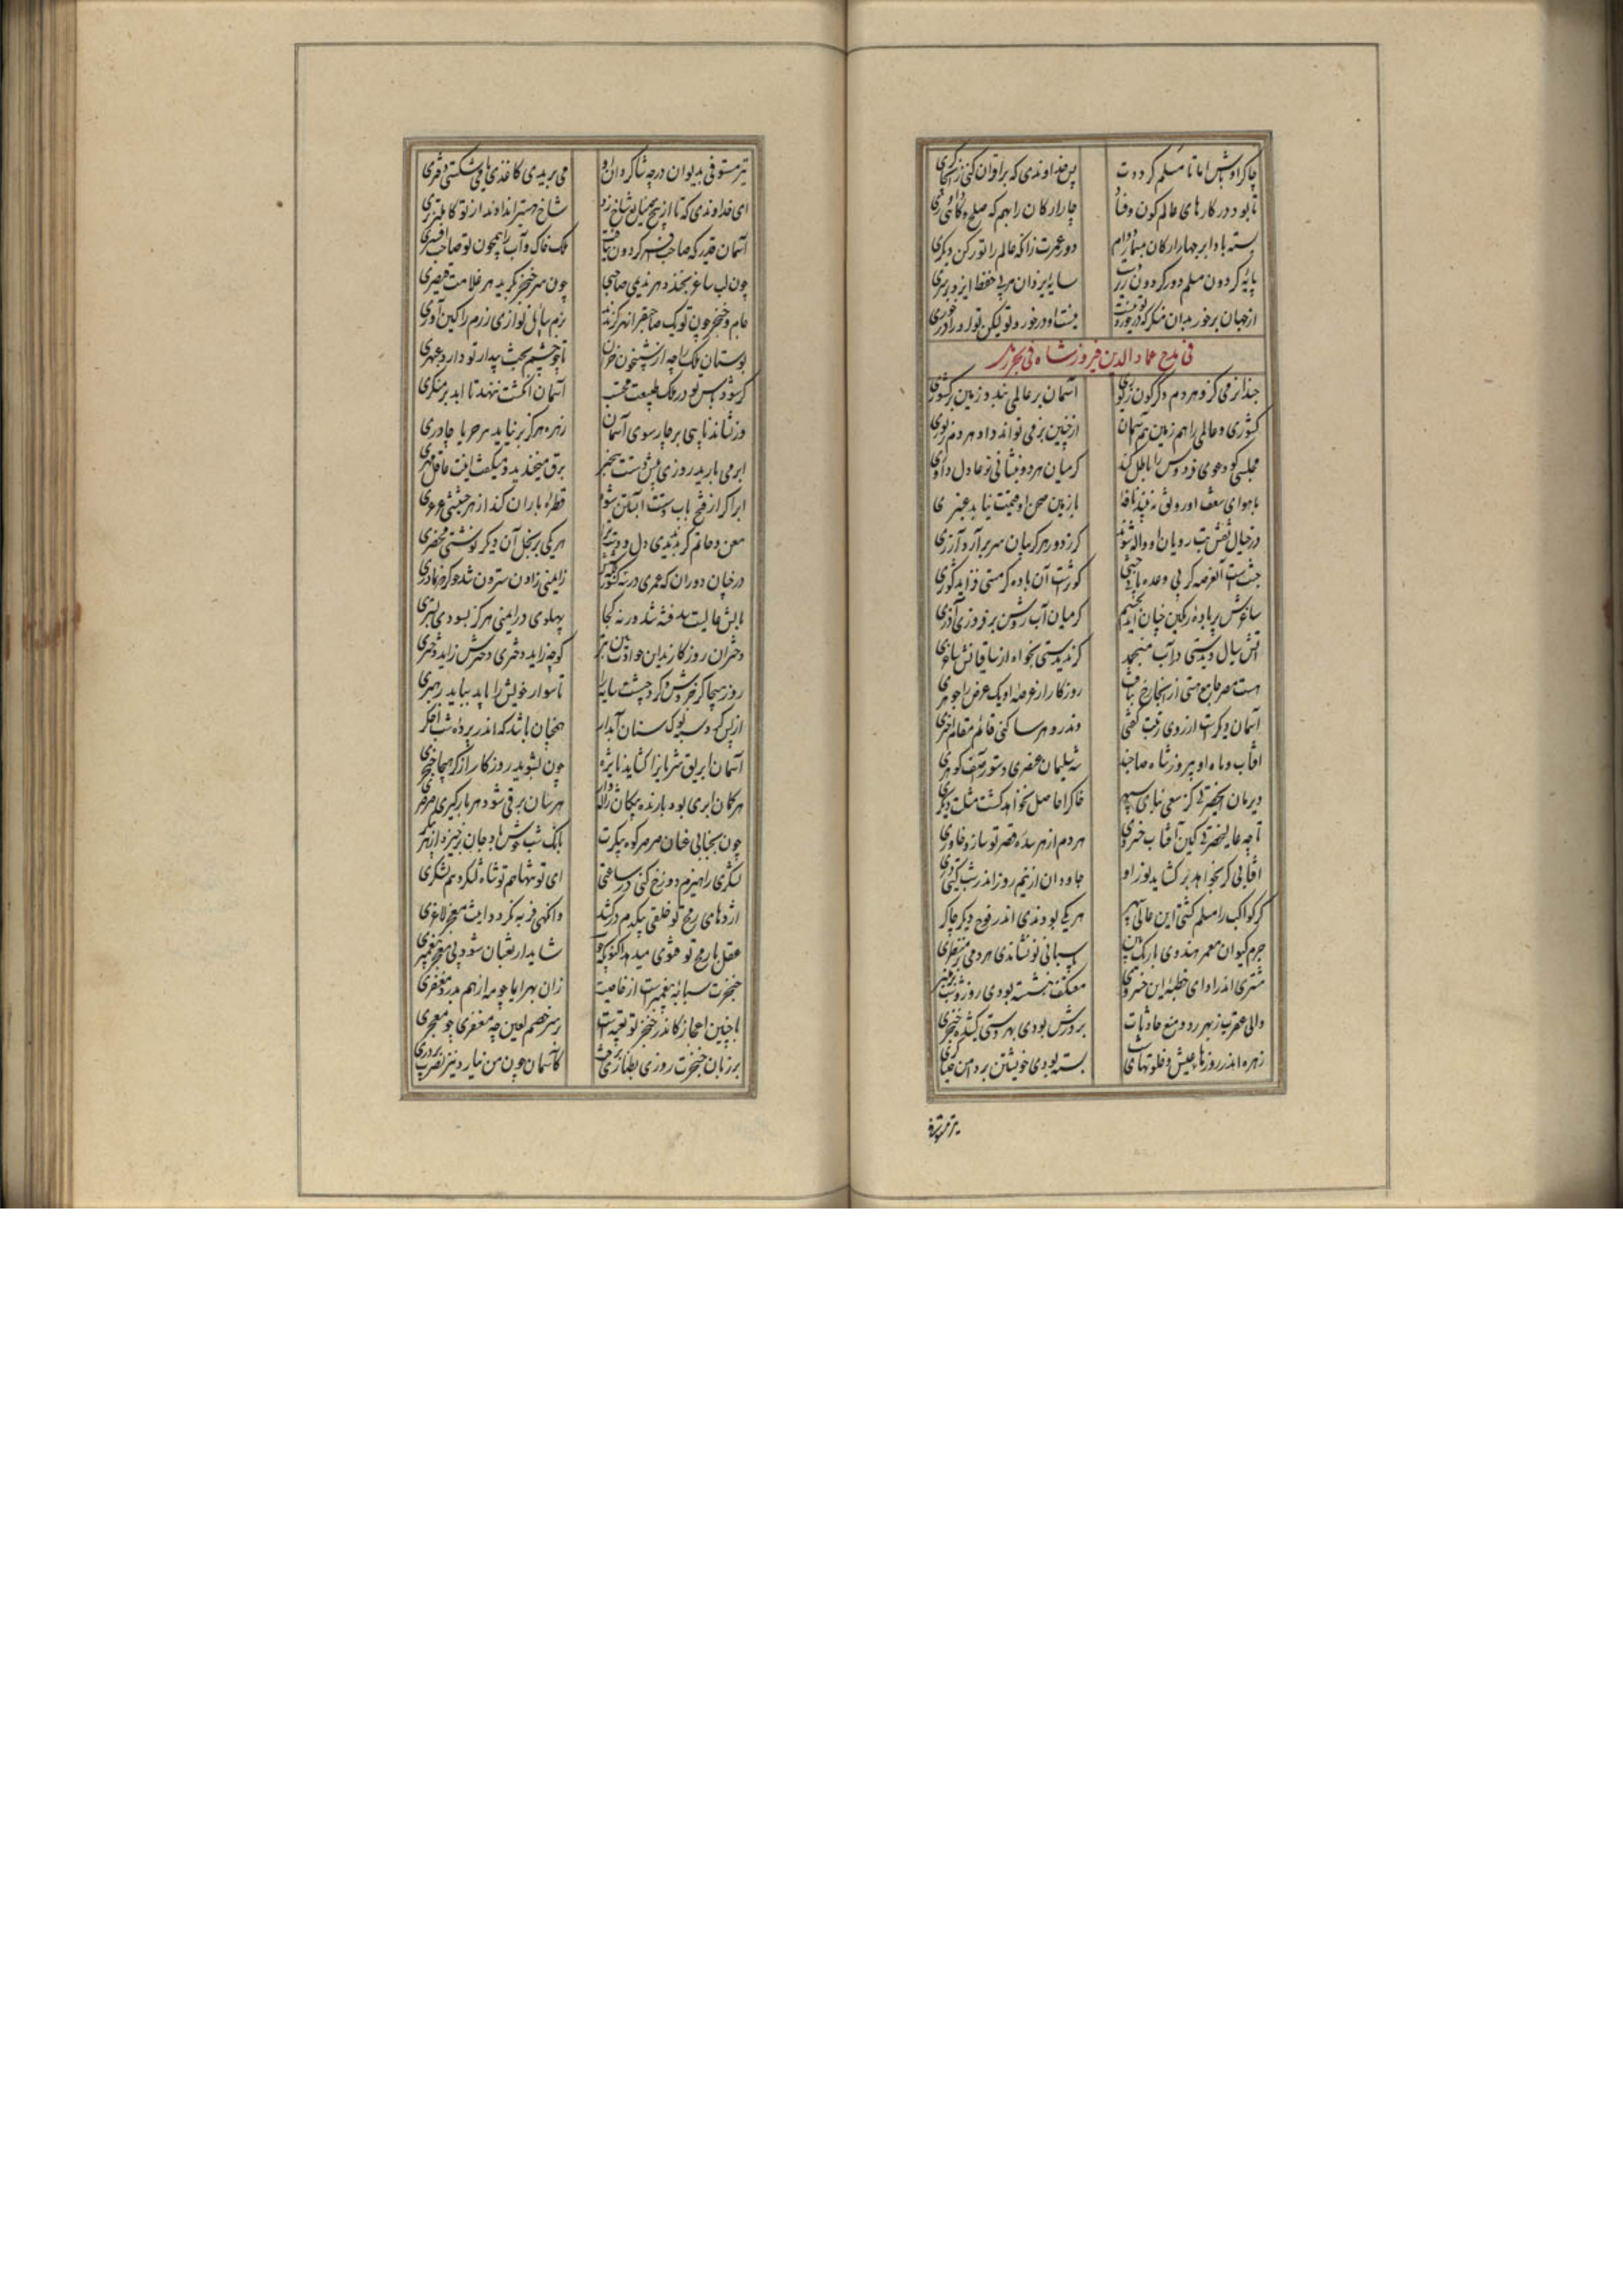 چاکر اوباش اما تا مسلم کرددت پس خداوندی که بر اقوان کنی
تا بود در کارهای عالم کون وفساد چار ارکان را بهم که صلح و کاهی داوری
بسته بادا بر چهار ارکان بمسمار دوام دور عمرت زانکه عالم را تو رکن دیکری
پایه کردون مسلم دور کردون زیر سایه یزدان مربی حفظ ایزد بر سری
از جهان برخور بدان منکر که
فی مدح عماد الدین فیروز شاه
حبذا بزمی کزو هر دم دکرکون زیوری آسمان بر عالمی بندد زمین بر کشوری
کشوری و عالمی را هم زمین هم آسمان از چنین بزمی تواند داد هر دم زیوری
مجلسی کو دعوی فردوس را باطل کند کر میان هر دو بنشانی تو عادل داوری
با هوای سقف او رونق نه بیند نافه با زمین صحن او قیمت نیابد عنبری
در خیال نقش بت رویان او واله شود کر ز دور هر کریبان سر برآرد آزری
جنتست القصه کر بی وعده یابی جنتی کوثرست آن باده کر مستی فزاید کوثری
ساغرش پر باده رنکین چنان آید بچشم کز میان آب روشن برفروزی آذری
آتش سیال دیدستی در آب منجمد کر ندیدستی بخواه از ساقیانش ساغری
هست مصر جامع هستی از اینجا رخ متاب روزکار از عرصه او یک عرض را جوهری
آسمان دیکرست از روی رتبت کفتیی وندرو هر ساکنی قائم مقام اختری
آفتاب و ماه او پیروز شاه صاحبند شه سلیمان عنصری دستور آصف کوهری
دیر مان ای حضرتی کز سعی بنای سپهر خاک را حاصل نخواهد کشت مثلت دیکری
تا چه عالی حضرتی کین آفتاب خسروی هر دم از هر سده قصر تو سازد خاوری
آفتابی کر بخواهد برکشاید نور او جاودان از نیم روز اندر شب کیتی دری
کر کواکب را مسلم کشتی این عالی سپهر هر یکی بودندی اندر فوج دیکر چاکری
جرم کیوان معمر هندوی باریک بین پاسبانی تو نشاندی هر دمی بر منظری
مشتری اندر ادای خطبه این خسروی معتکف بنشسته بودی روز و شب بر منبری
والی عقرب ز بهر رد و منع حادثات بر درش بودی بهر دستی کشیده خنجری
زهره اندر روزها بی عیش و خلوتهای شب بسته بودی خویشتن بر دامن خنیاکری
تیر مستوفی
تیر مستوفی بدیوان در چو شاکردان او می بریدی کاغذی یا می شکستی دفتری
ای خداوندی که تا از بیخ بنیاد شاخ زد شاخ هستی را نداند از تو کاملتر بری
آسمان قدری که صاحب افسر کردون نیافت ملک خاک و آب را همچون تو صاحب افسری
چون لب ساغر بخندد هر ندیمی صاحبی چون سر خنجر بکرید هر غلامت قیصری
جام و خنجر چون تو یک صاحب قران هرکز ندید بزم را سایل نوازی رزم را کین آوری
بوستان ملک را چه از شبیخون خزان تا چو چشم بخت بیدار تو دارد عبهری
کر شود پاس تو در ملک طبیعت محتسب آسمان انکشت ننهد تا ابد بر منکری
ور نشاند ناهی بر چار سوی آسمان زهره هرکز برنیاید هر سحر بی چادری
ابر می بارید روزی پیش دستت بی خبر برق میخندید و میکفت اینت عاقل مهتری
ابر اکر از فتح باب دستت آبستن شود قطره باران کند از هر حشیشی عرعری
معن و حاتم کر بدیدندی دل و دست ترا هر یکی بر بخل آن دیکر نوشتی محضری
در چنان دوران که عمری در سه کشور زایمنی زادن سترون شد چو هر مادری
بالش عالیت سد فتنه شد ورنه کجا پهلوی در ایمنی هرکز بسودی بستری
دختران روزکارند این حوادث وین بتر کو چو زاید دختری دخترش زاید دختری
روز هیجا کز خروش و کرد جیشت سایه را تا سوار خویش را یابد بباید رهبری
از پس کرد سیه نوک سنان آبدار همچنان باشد که اندر پرده شب اخکری
آسمان ابریق شریان را کشاید نایژه چون بشوید روزکار از کرد هیجا خنجری
هر کمان ابری بود بارنده پیکان ژاله وار هر سنان برقی شود هر بارکیری صرصری
چون بجنبانی عنان مرمر کوه پیکرت بانک شاباش و جان برخیزد از هر پیکری
لشکری را هیزم دوزخ کنی در ساعتی ای تو تنها هم تو شاه لشکر و هم لشکری
اژدهای رمح تو خلقی بیکدم درکشد وانکهی فربه نکردد اینت معجز لاغری
عقل با رمح تو فتوی میدهد اکنونکه شاید ار ثعبان شود بی معجز پیغمبری
خنجرت سبابه پیغمبرست از خاصیت زان بهر ایما چو مه از هم بدرد مغفری
با چنین اعجاز کاندر خنجر تو تعبیه است بر سر خصم لعین چه مغفری چه معجری
بر زبان خنجرت روزی بطنازی برفت کآسمان چون من نیارد نیز نصرت پروری